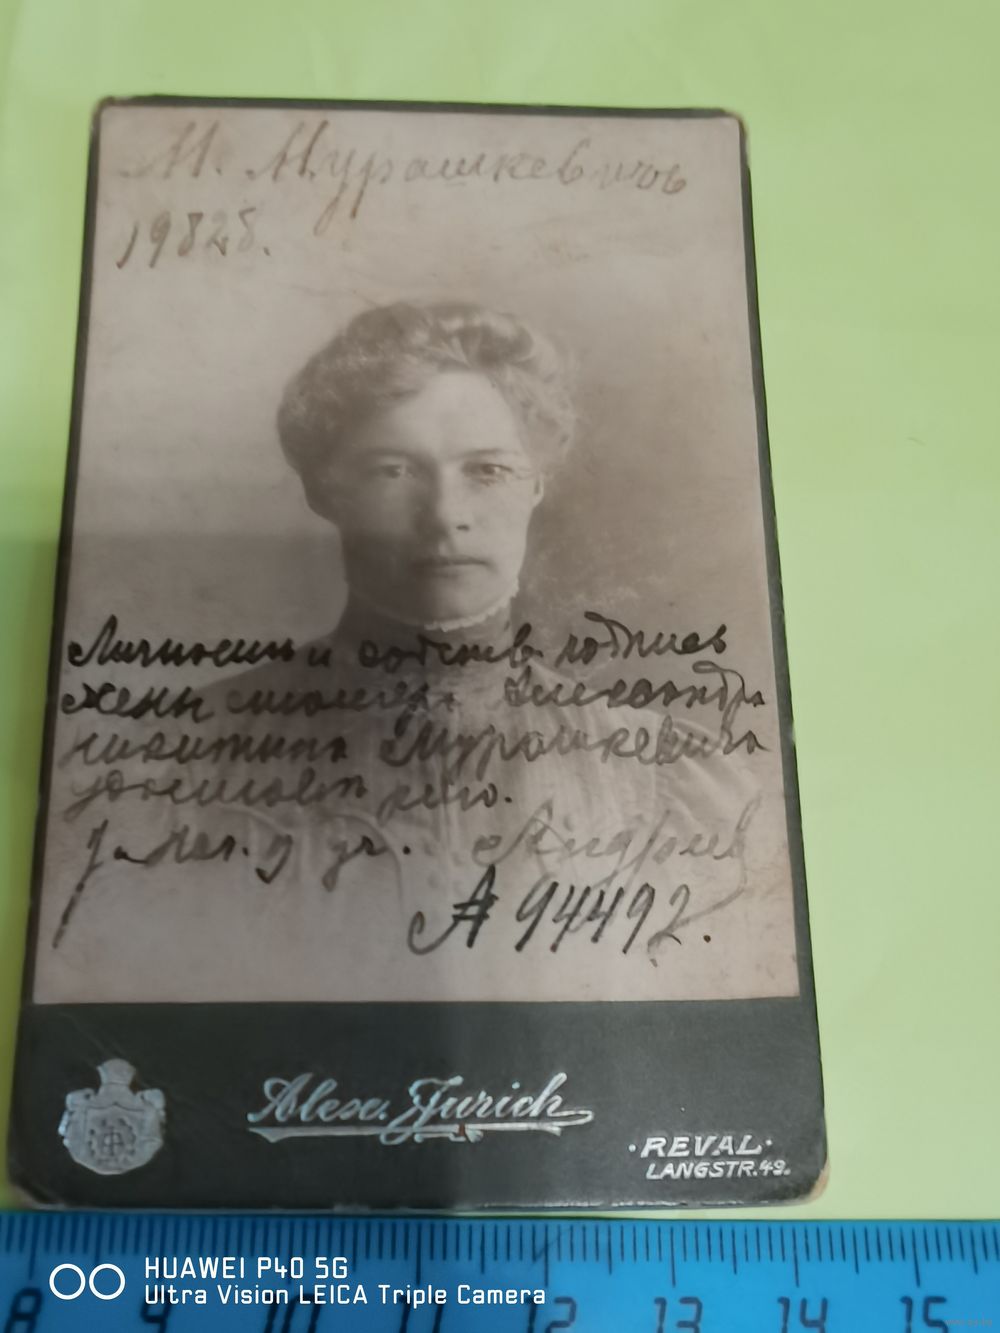 М. Мурашкевичъ
19828.
Личность и собств. подпись
жены Александра
Мурашкевича
А 94492.
Alex. Jurich
·REVAL·
LANGSTR. 49.
8 9 10 11 12 13 14 15
HUAWEI P40 5G
Ultra Vision LEICA Triple Camera